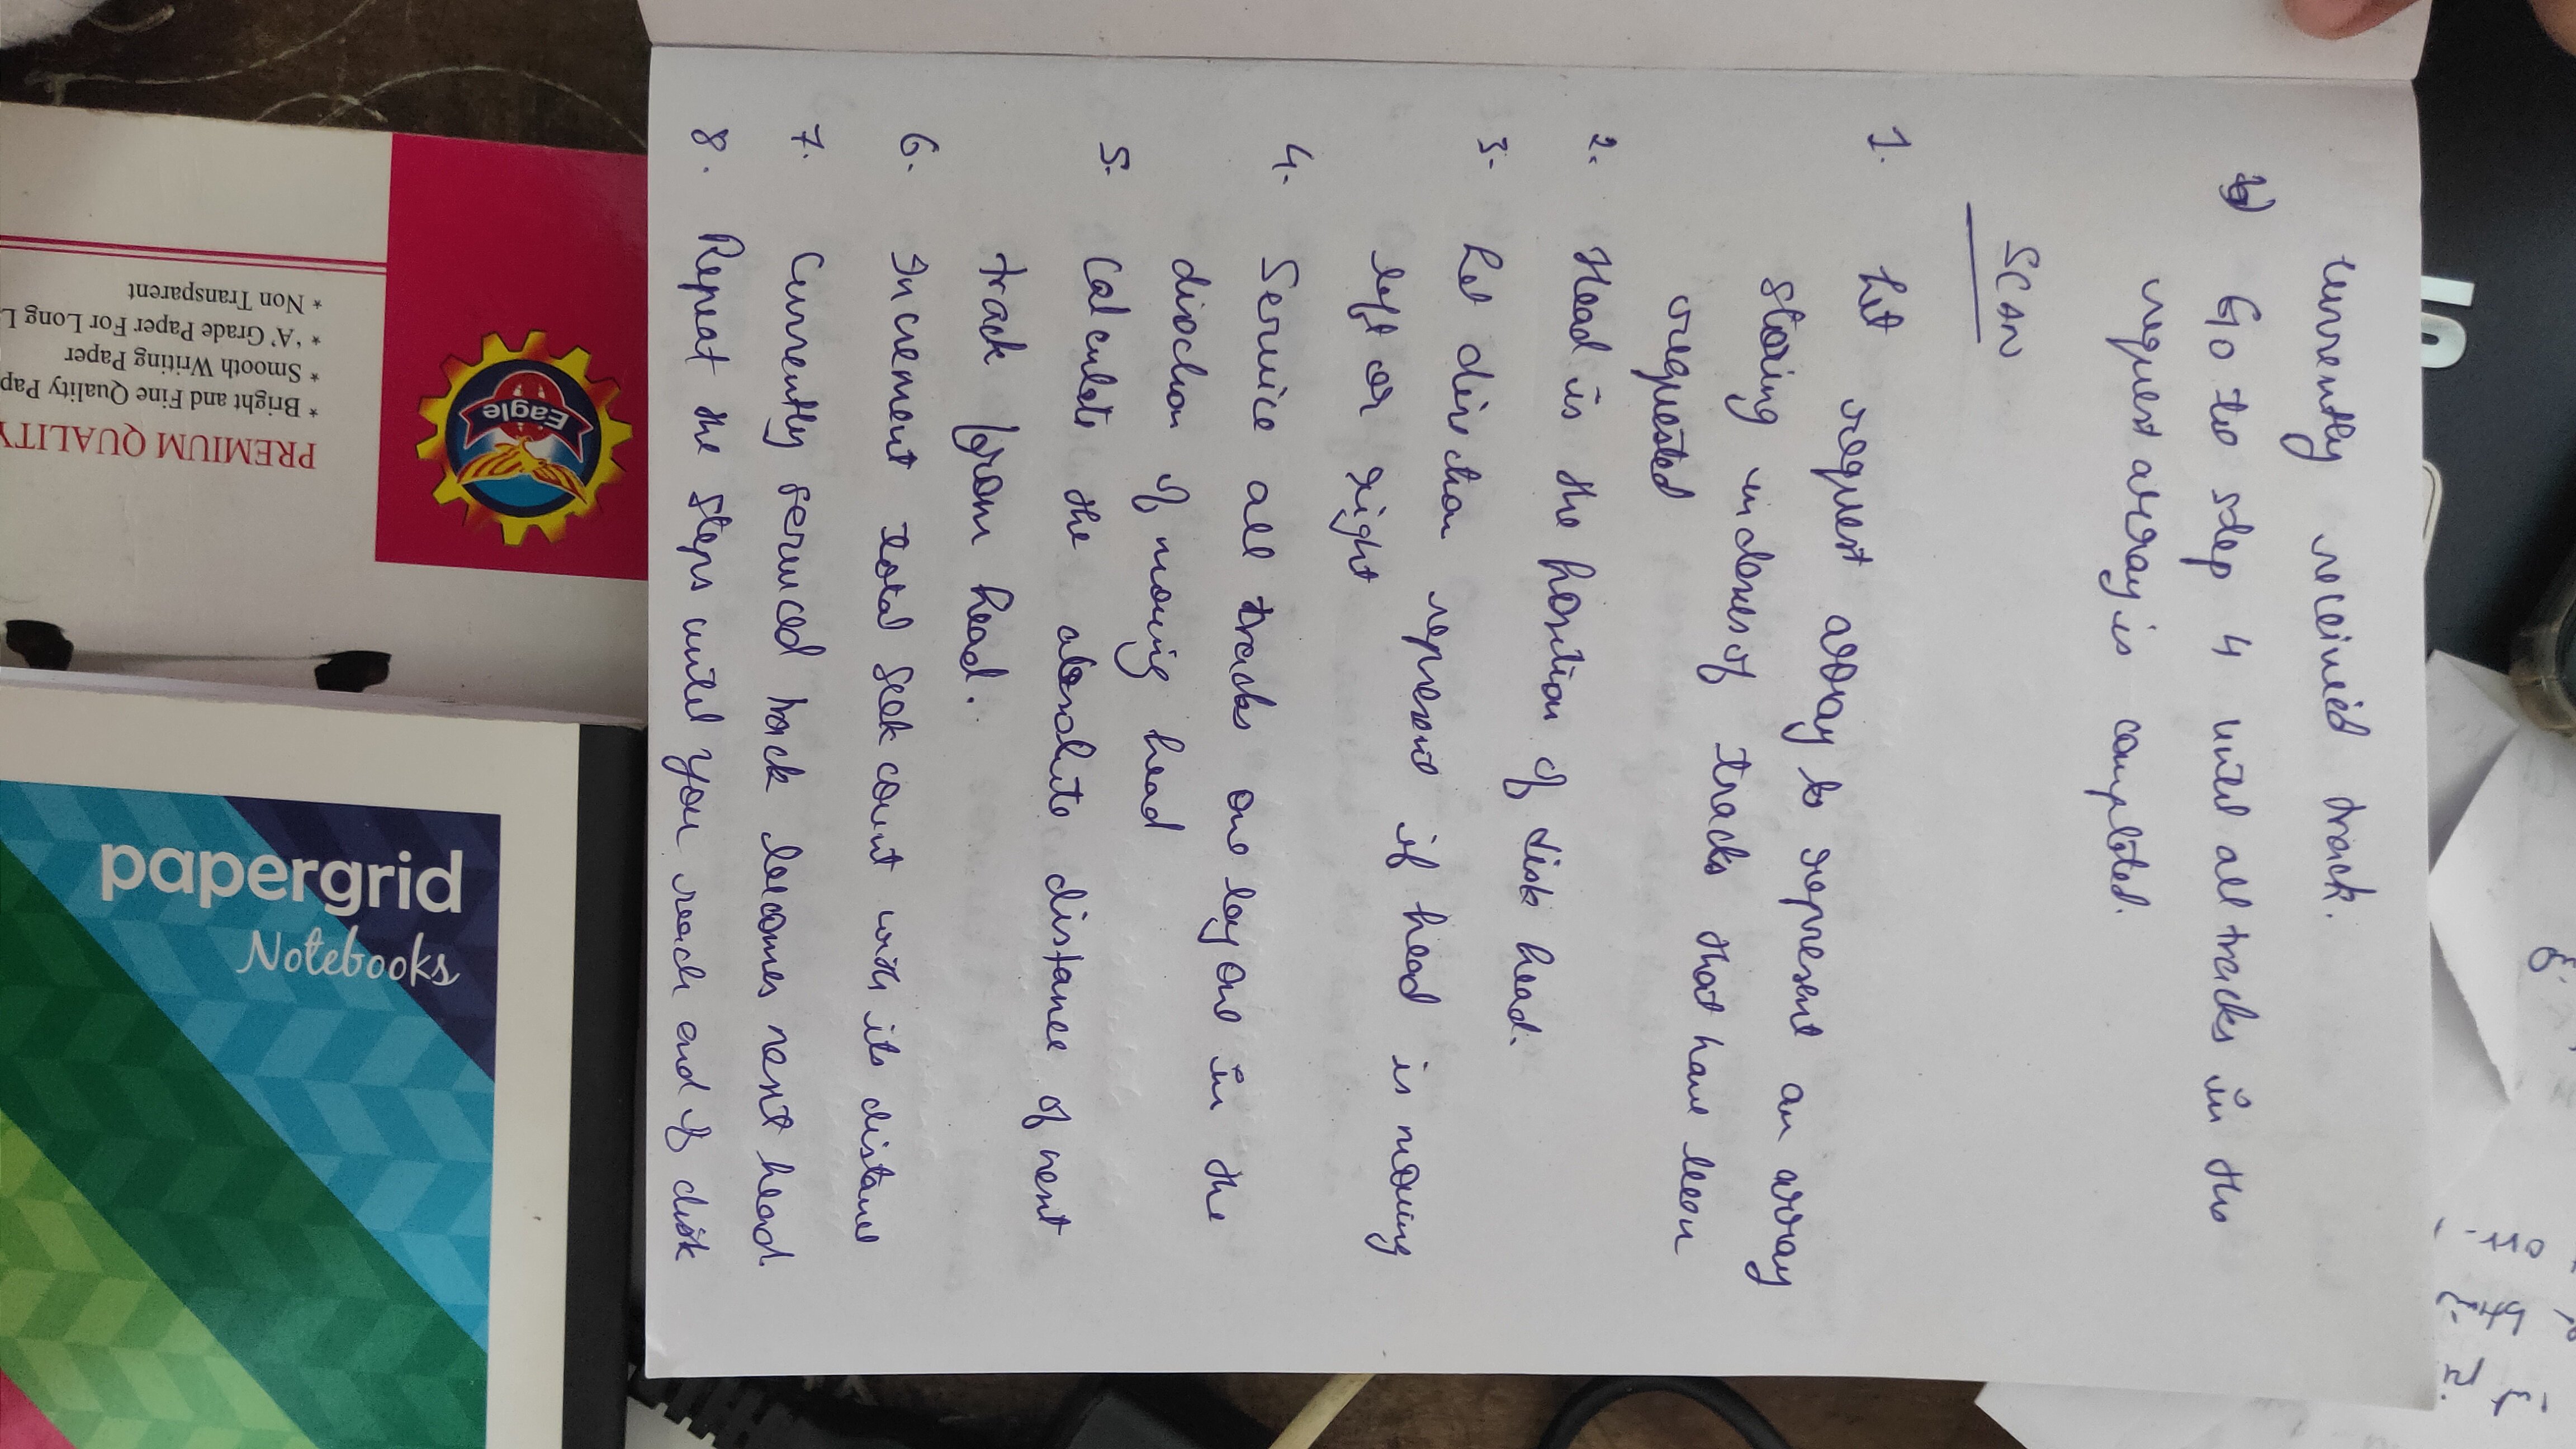 currently received track.
6) Go to step 4 until all tracks in the
request array is completed.
SCAN
1. Let request array to represent an array
storing indexes of tracks that have been
requested
2. Head is the position of disk head.
3. Let direction represent if head is moving
left or right
4. Service all tracks one by one in the
direction of moving head
5. Calculate the absolute distance of next
track from head.
6. Increment total seek count with its distance
7. Currently serviced track becomes next head.
8. Repeat the steps until you reach end of disk
PREMIUM QUALITY
* Bright and Fine Quality Pap
* Smooth Writing Paper
* 'A' Grade Paper For Long L
* Non Transparent
Eagle
papergrid
Notebooks